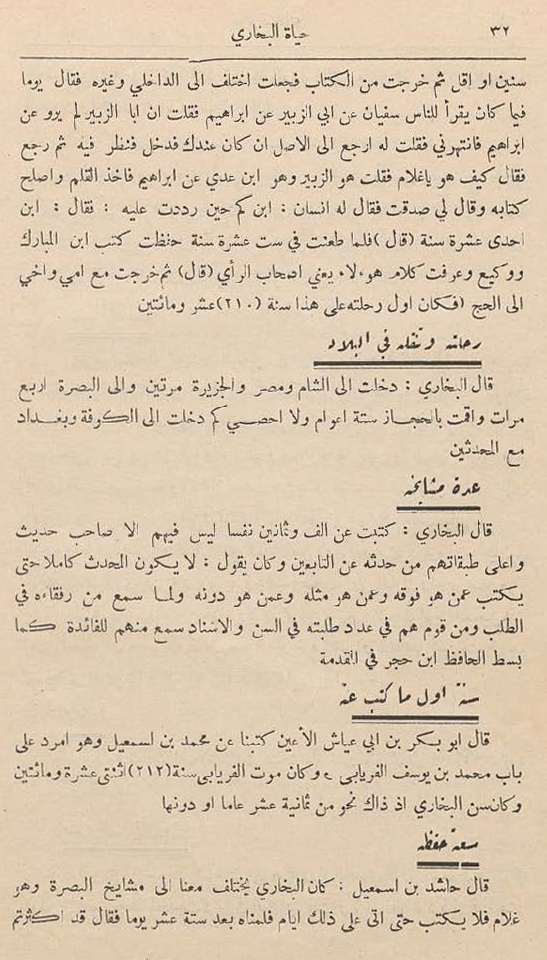 ٣٢
حياة البخاري
سنين او اقل ثم خرجت من الكتاب فجعلت اختلف الى الداخلي وغيره فقال يوما
فيما كان يقرأ للناس سفيان عن ابي الزبير عن ابراهيم فقلت ان ابا الزبير لم يرو عن
ابراهيم فانتهرني فقلت له ارجع الى الاصل ان كان عندك فدخل فنظر فيه ثم رجع
فقال كيف هو ياغلام فقلت هو الزبير وهو ابن عدي عن ابراهيم فاخذ القلم واصلح
كتابه وقال لي صدقت فقال له انسان : ابن كم حين رددت عليه : فقال : ابن
احدى عشرة سنة (قال) فلما طعنت في ست عشرة سنة حفظت كتب ابن المبارك
ووكيع وعرفت كلام هوءلاء يعني اصحاب الرأي (قال) ثم خرجت مع امي واخي
الى الحج (فكان اول رحلته على هذا سنة (٢١٠) عشر ومائتين
رحلته وتنقله في البلاد
قال البخاري : دخلت الى الشام ومصر والجزيرة مرتين والى البصرة اربع
مرات واقت بالحجاز ستة اعوام ولا احصي كم دخلت الى الكوفة وبغداد
مع المحدثين
عدة مشايخه
قال البخاري : كتبت عن الف وثمانين نفسا ليس فيهم الا صاحب حديث
واعلى طبقاتهم من حدثه عن التابعين وكان يقول : لا يكون المحدث كاملا حتى
يكتب عمن هو فوقه وعمن هو مثله وعمن هو دونه ولما سمع من رفقاءه في
الطلب ومن قوم هم في عداد طلبته في السن والاسناد سمع منهم للفائدة كما
بسط الحافظ ابن حجر في المقدمة
سنة اول ما كتب عنه
قال ابو بكر بن ابي عياش الأعين كتبنا عن محمد بن اسمعيل وهو امرد على
باب محمد بن يوسف الفريابي وكان موت الفريابي سنة (٢١٢) اثنتي عشرة ومائتين
وكان سن البخاري اذ ذاك نحو من ثمانية عشر عاما او دونها
سعة حفظه
قال حاشد بن اسمعيل : كان البخاري يختلف معنا الى مشايخ البصرة وهو
غلام فلا يكتب حتى اتى على ذلك ايام فلمناه بعد ستة عشر يوما فقال قد اكثرتم